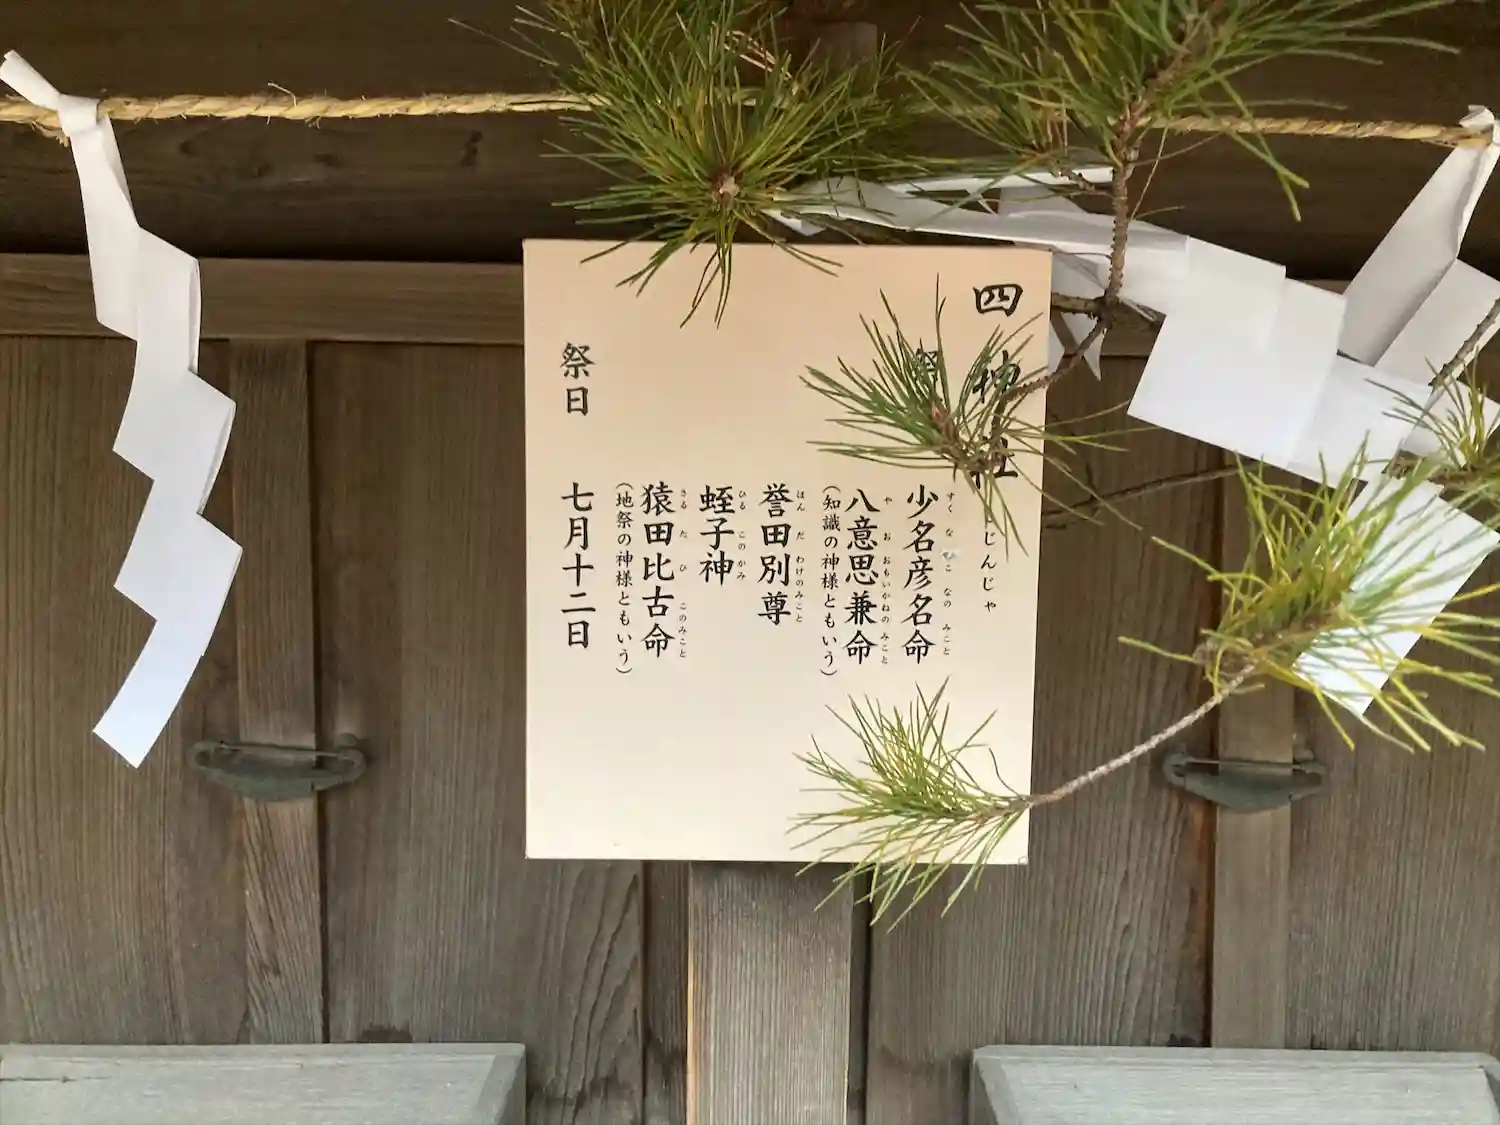 四神社
じんじゃ
祭
少名彦名命
すく な こ なの みこと
八意思兼命
や お おもいかねの みこと
(知識の神様ともいう)
誉田別尊
ほん だ わけのみこと
蛭子神
ひる このかみ
猿田比古命
さる た ひ このみこと
(地祭の神様ともいう)
祭日 七月十二日